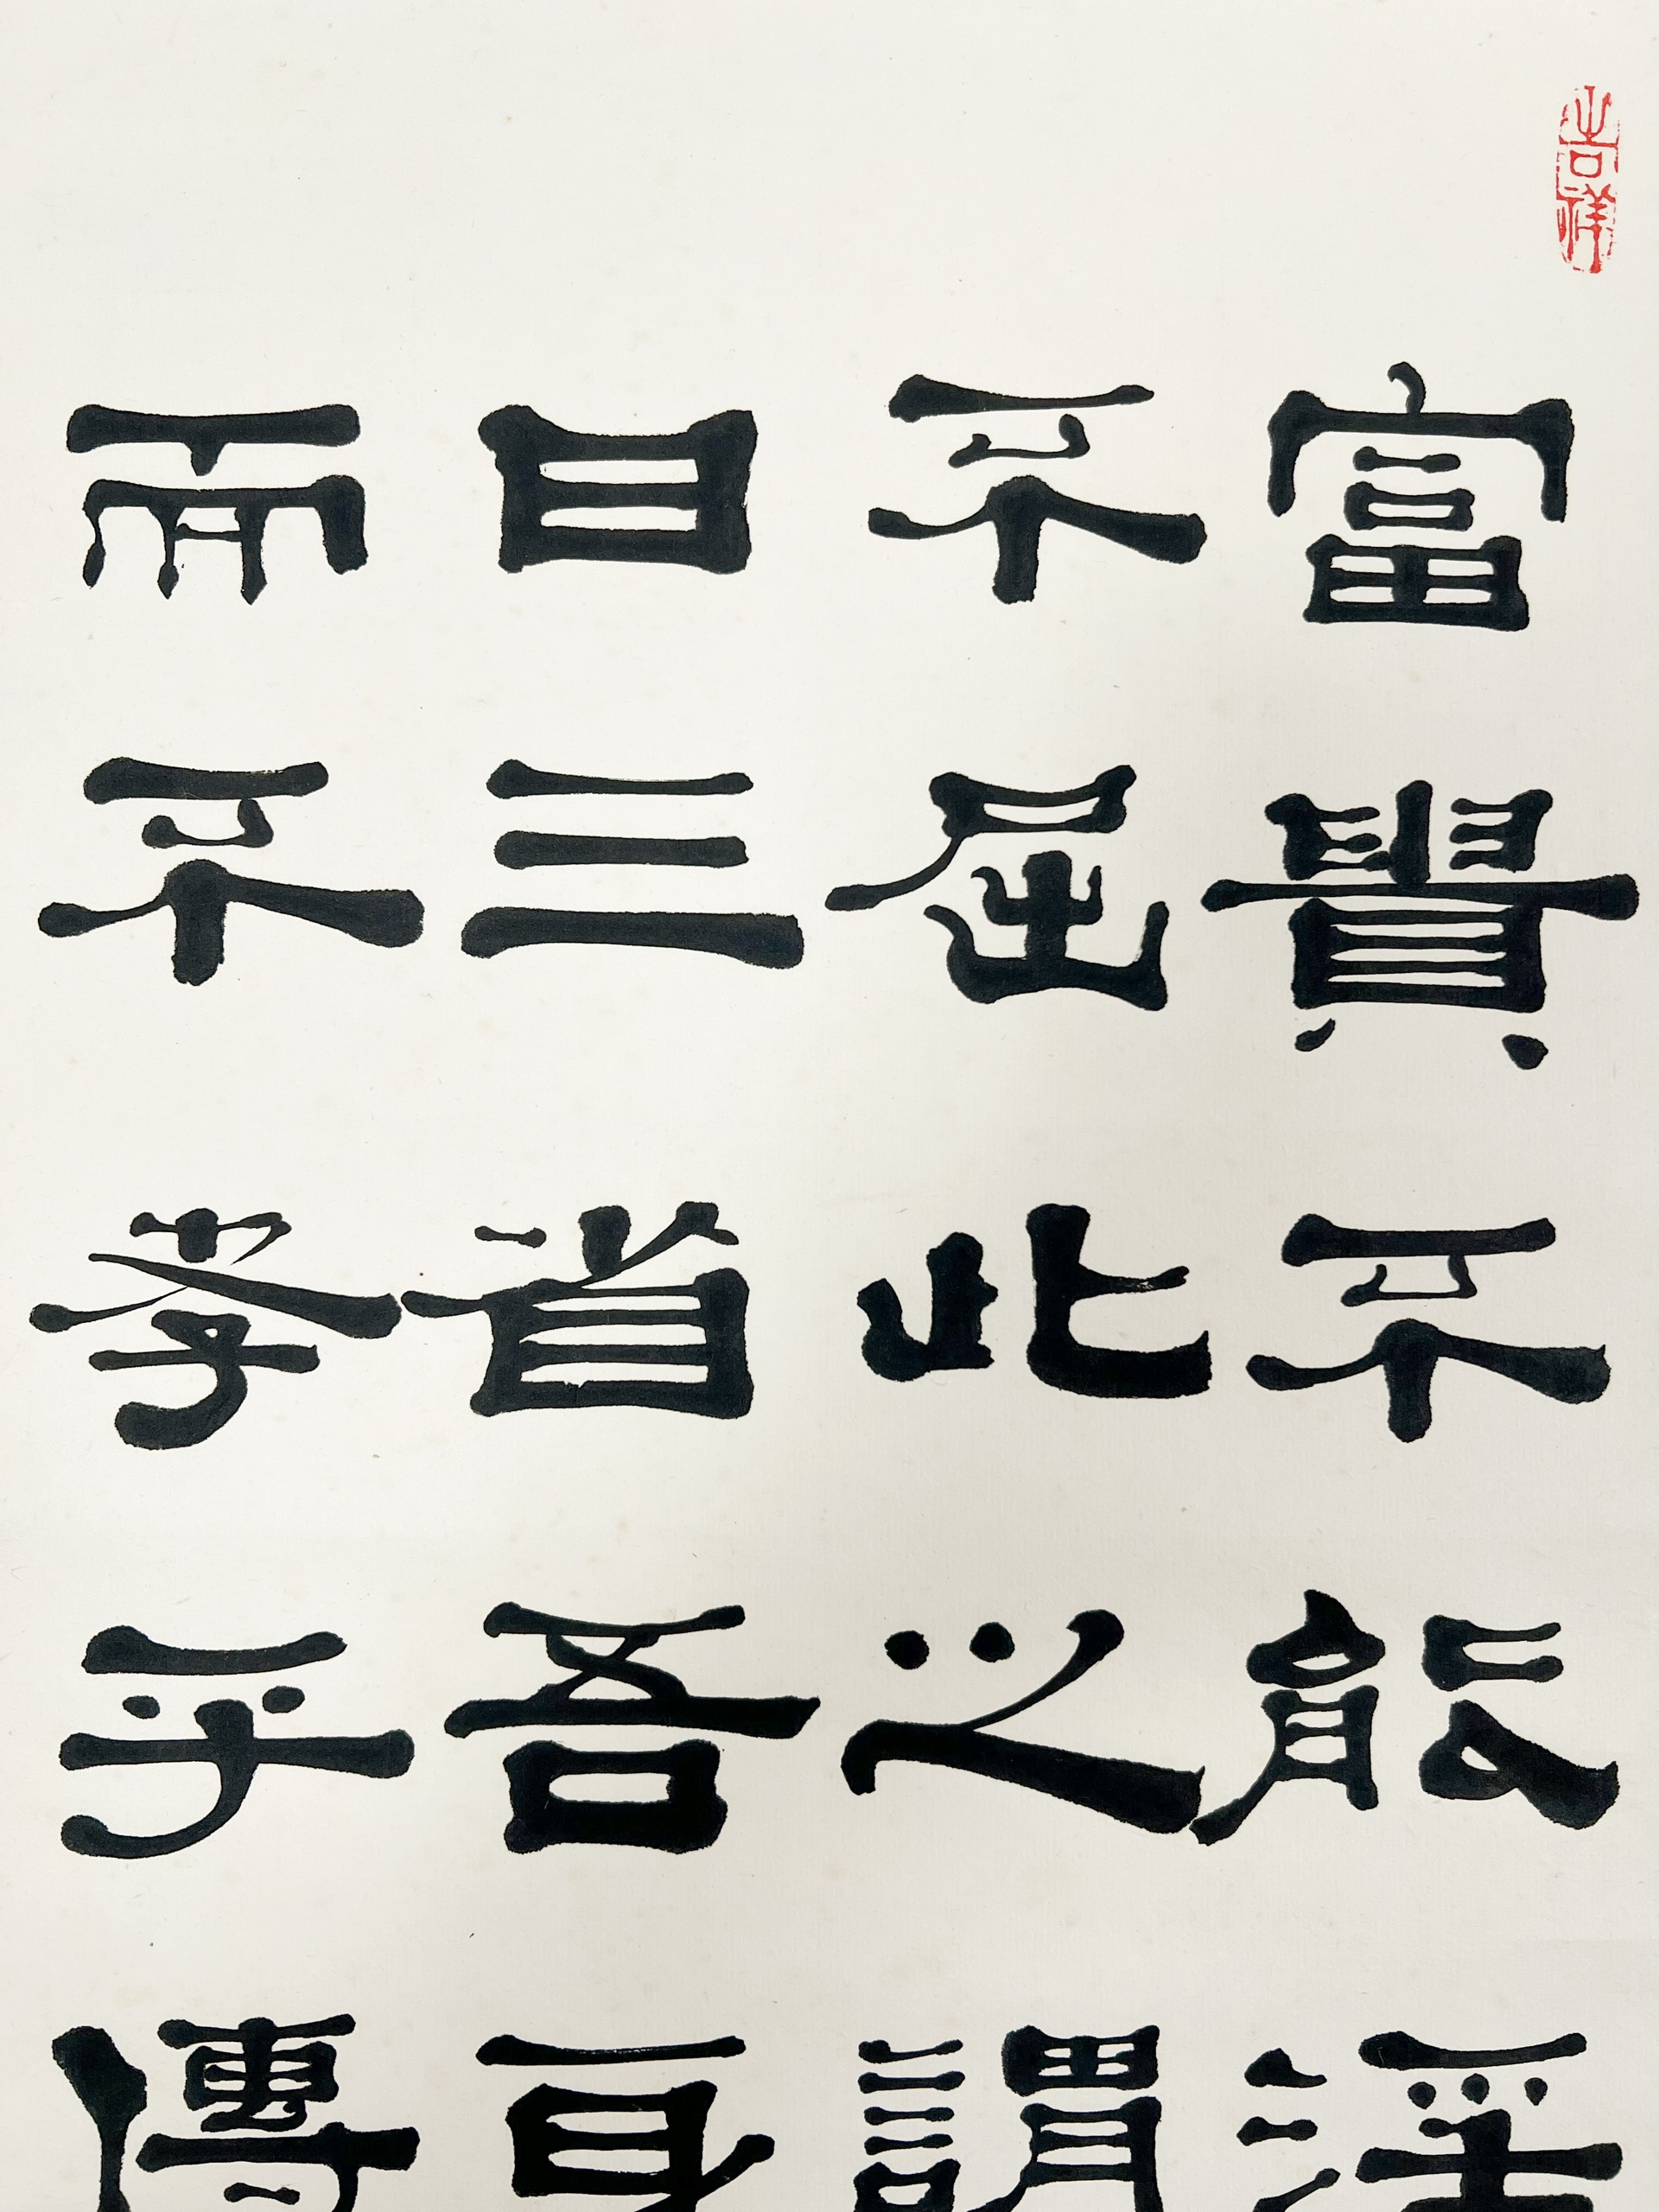 吉祥
富貴不能淫
不屈此之謂
日三省吾身
而不孝乎傳